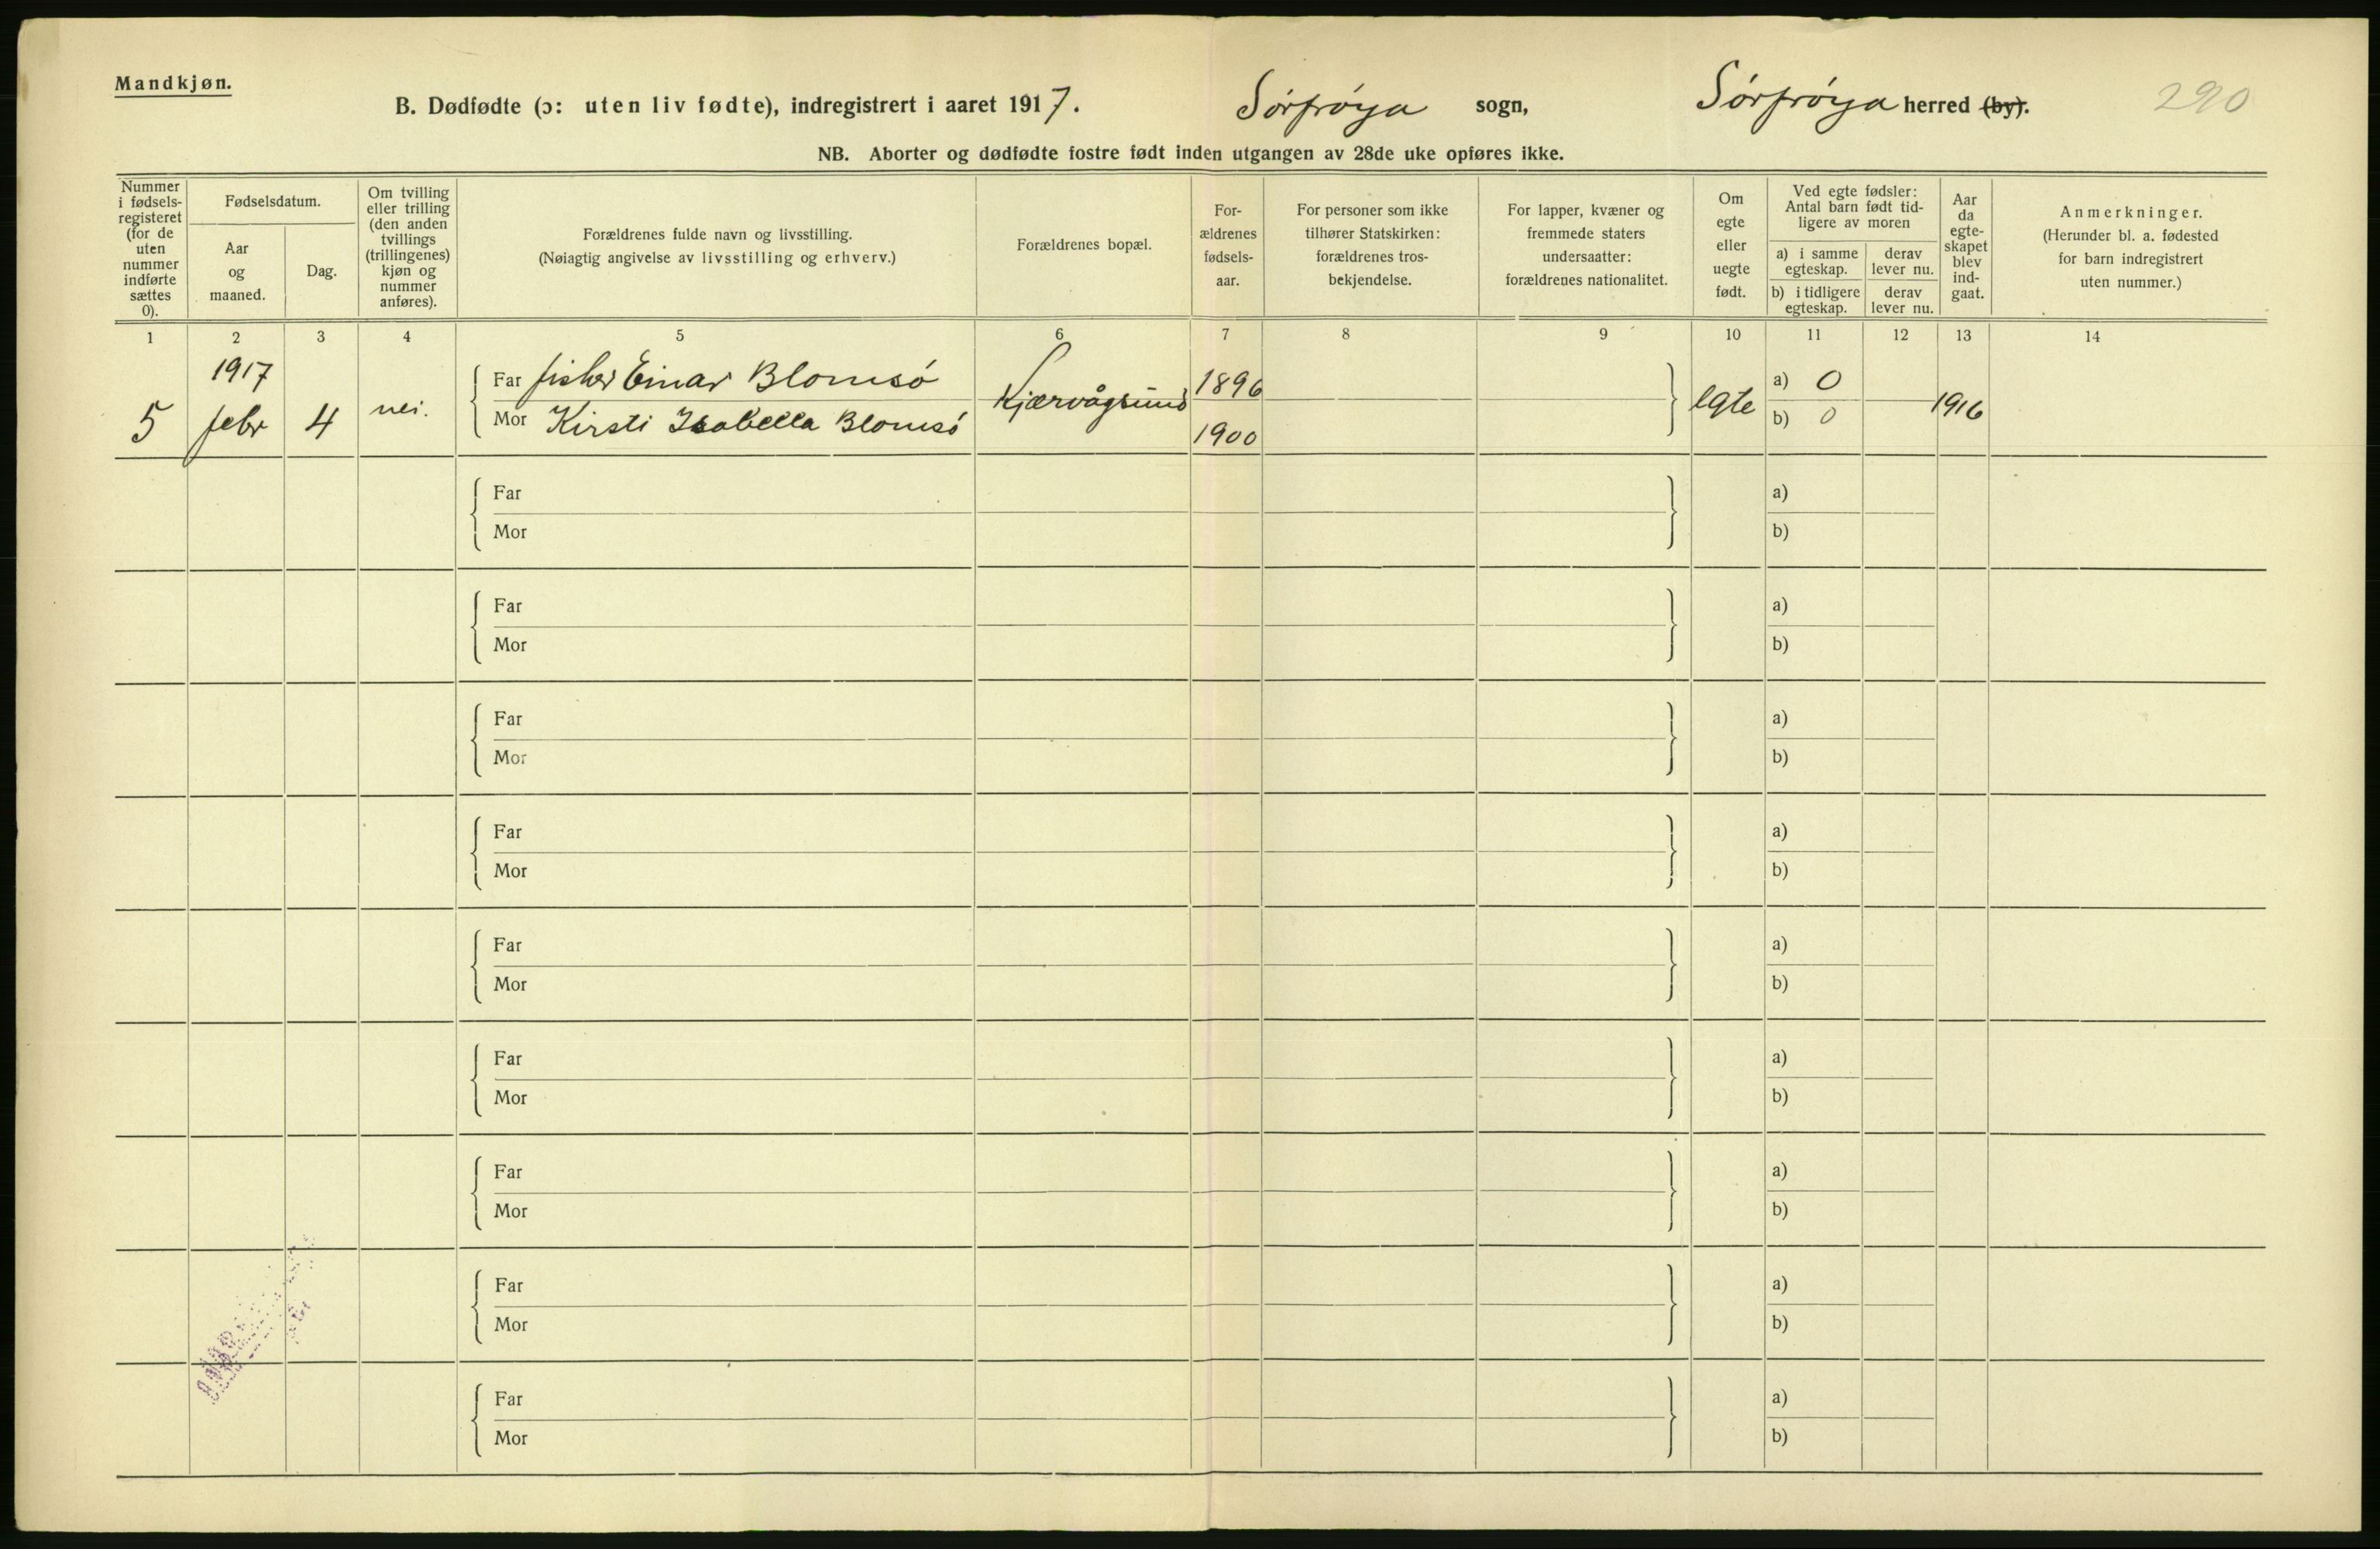 Mandkjøn.
B. Dødfødte (ɔ: uten liv fødte), indregistrert i aaret 1917. Sórfróya sogn, Sórfróya herred (by). 290
NB. Aborter og dødfødte fostre født inden utgangen av 28de uke opføres ikke.
Nummer
i fødsels-
registeret
(for de
uten
nummer
indførte
sættes
0).
Fødselsdatum.
Aar
og
maaned.
Dag.
Om tvilling
eller trilling
(den anden
tvillings
(trillingenes)
kjøn og
nummer
anføres).
Forældrenes fulde navn og livsstilling.
(Nøiagtig angivelse av livsstilling og erhverv.)
Forældrenes bopæl.
For-
ældrenes
fødsels-
aar.
For personer som ikke
tilhører Statskirken:
forældrenes tros-
bekjendelse.
For lapper, kvæner og
fremmede staters
undersaatter:
forældrenes nationalitet.
Om
egte
eller
uegte
født.
Ved egte fødsler:
Antal barn født tid-
ligere av moren
a) i samme
egteskap.
derav
lever nu.
b) i tidligere
egteskap.
derav
lever nu.
Aar
da
egte-
skapet
blev
ind-
gaat.
Anmerkninger.
(Herunder bl. a. fødested
for barn indregistrert
uten nummer.)
1 2 3 4 5 6 7 8 9 10 11 12 13 14
1917
Far fisker Einar Blomsó 1896 a) 0
5 febr 4 nei. Kjærvågsund egte 1916
Mor Kirsti Isabella Blomsó 1900 b) 0
Far a)
Mor b)
Far a)
Mor b)
Far a)
Mor b)
Far a)
Mor b)
Far a)
Mor b)
Far a)
Mor b)
Far a)
Mor b)
Far a)
Mor b)
Far a)
Mor b)